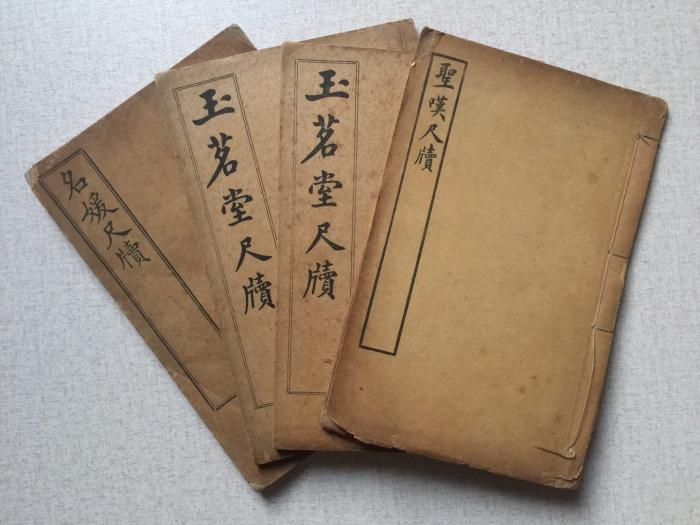 名媛尺牘
玉茗堂尺牘
玉茗堂尺牘
聖嘆尺牘